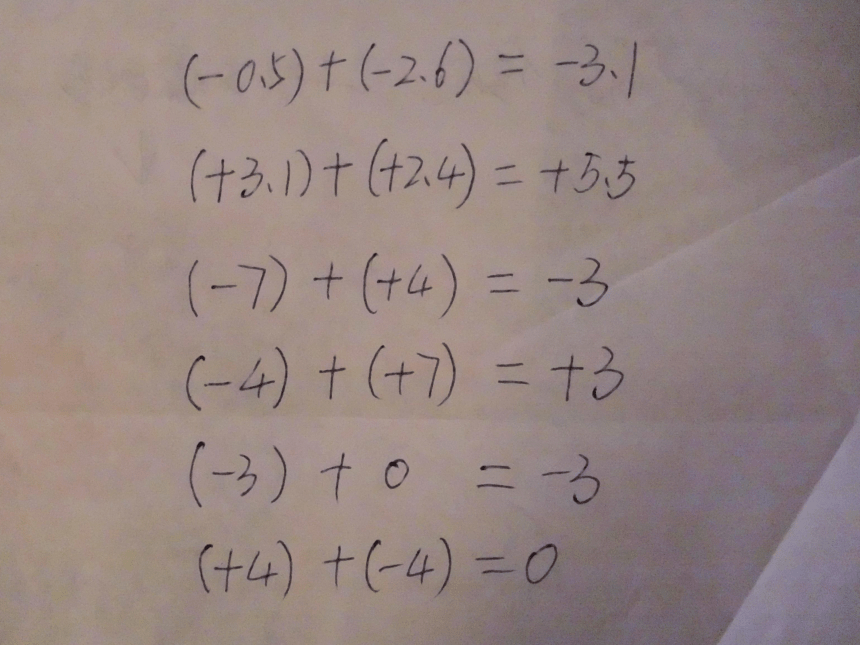 (-0.5)+(-2.6) = -3.1
(+3.1)+(+2.4) = +5.5
(-7) + (+4) = -3
(-4) + (+7) = +3
(-3) + 0 = -3
(+4) + (-4) = 0